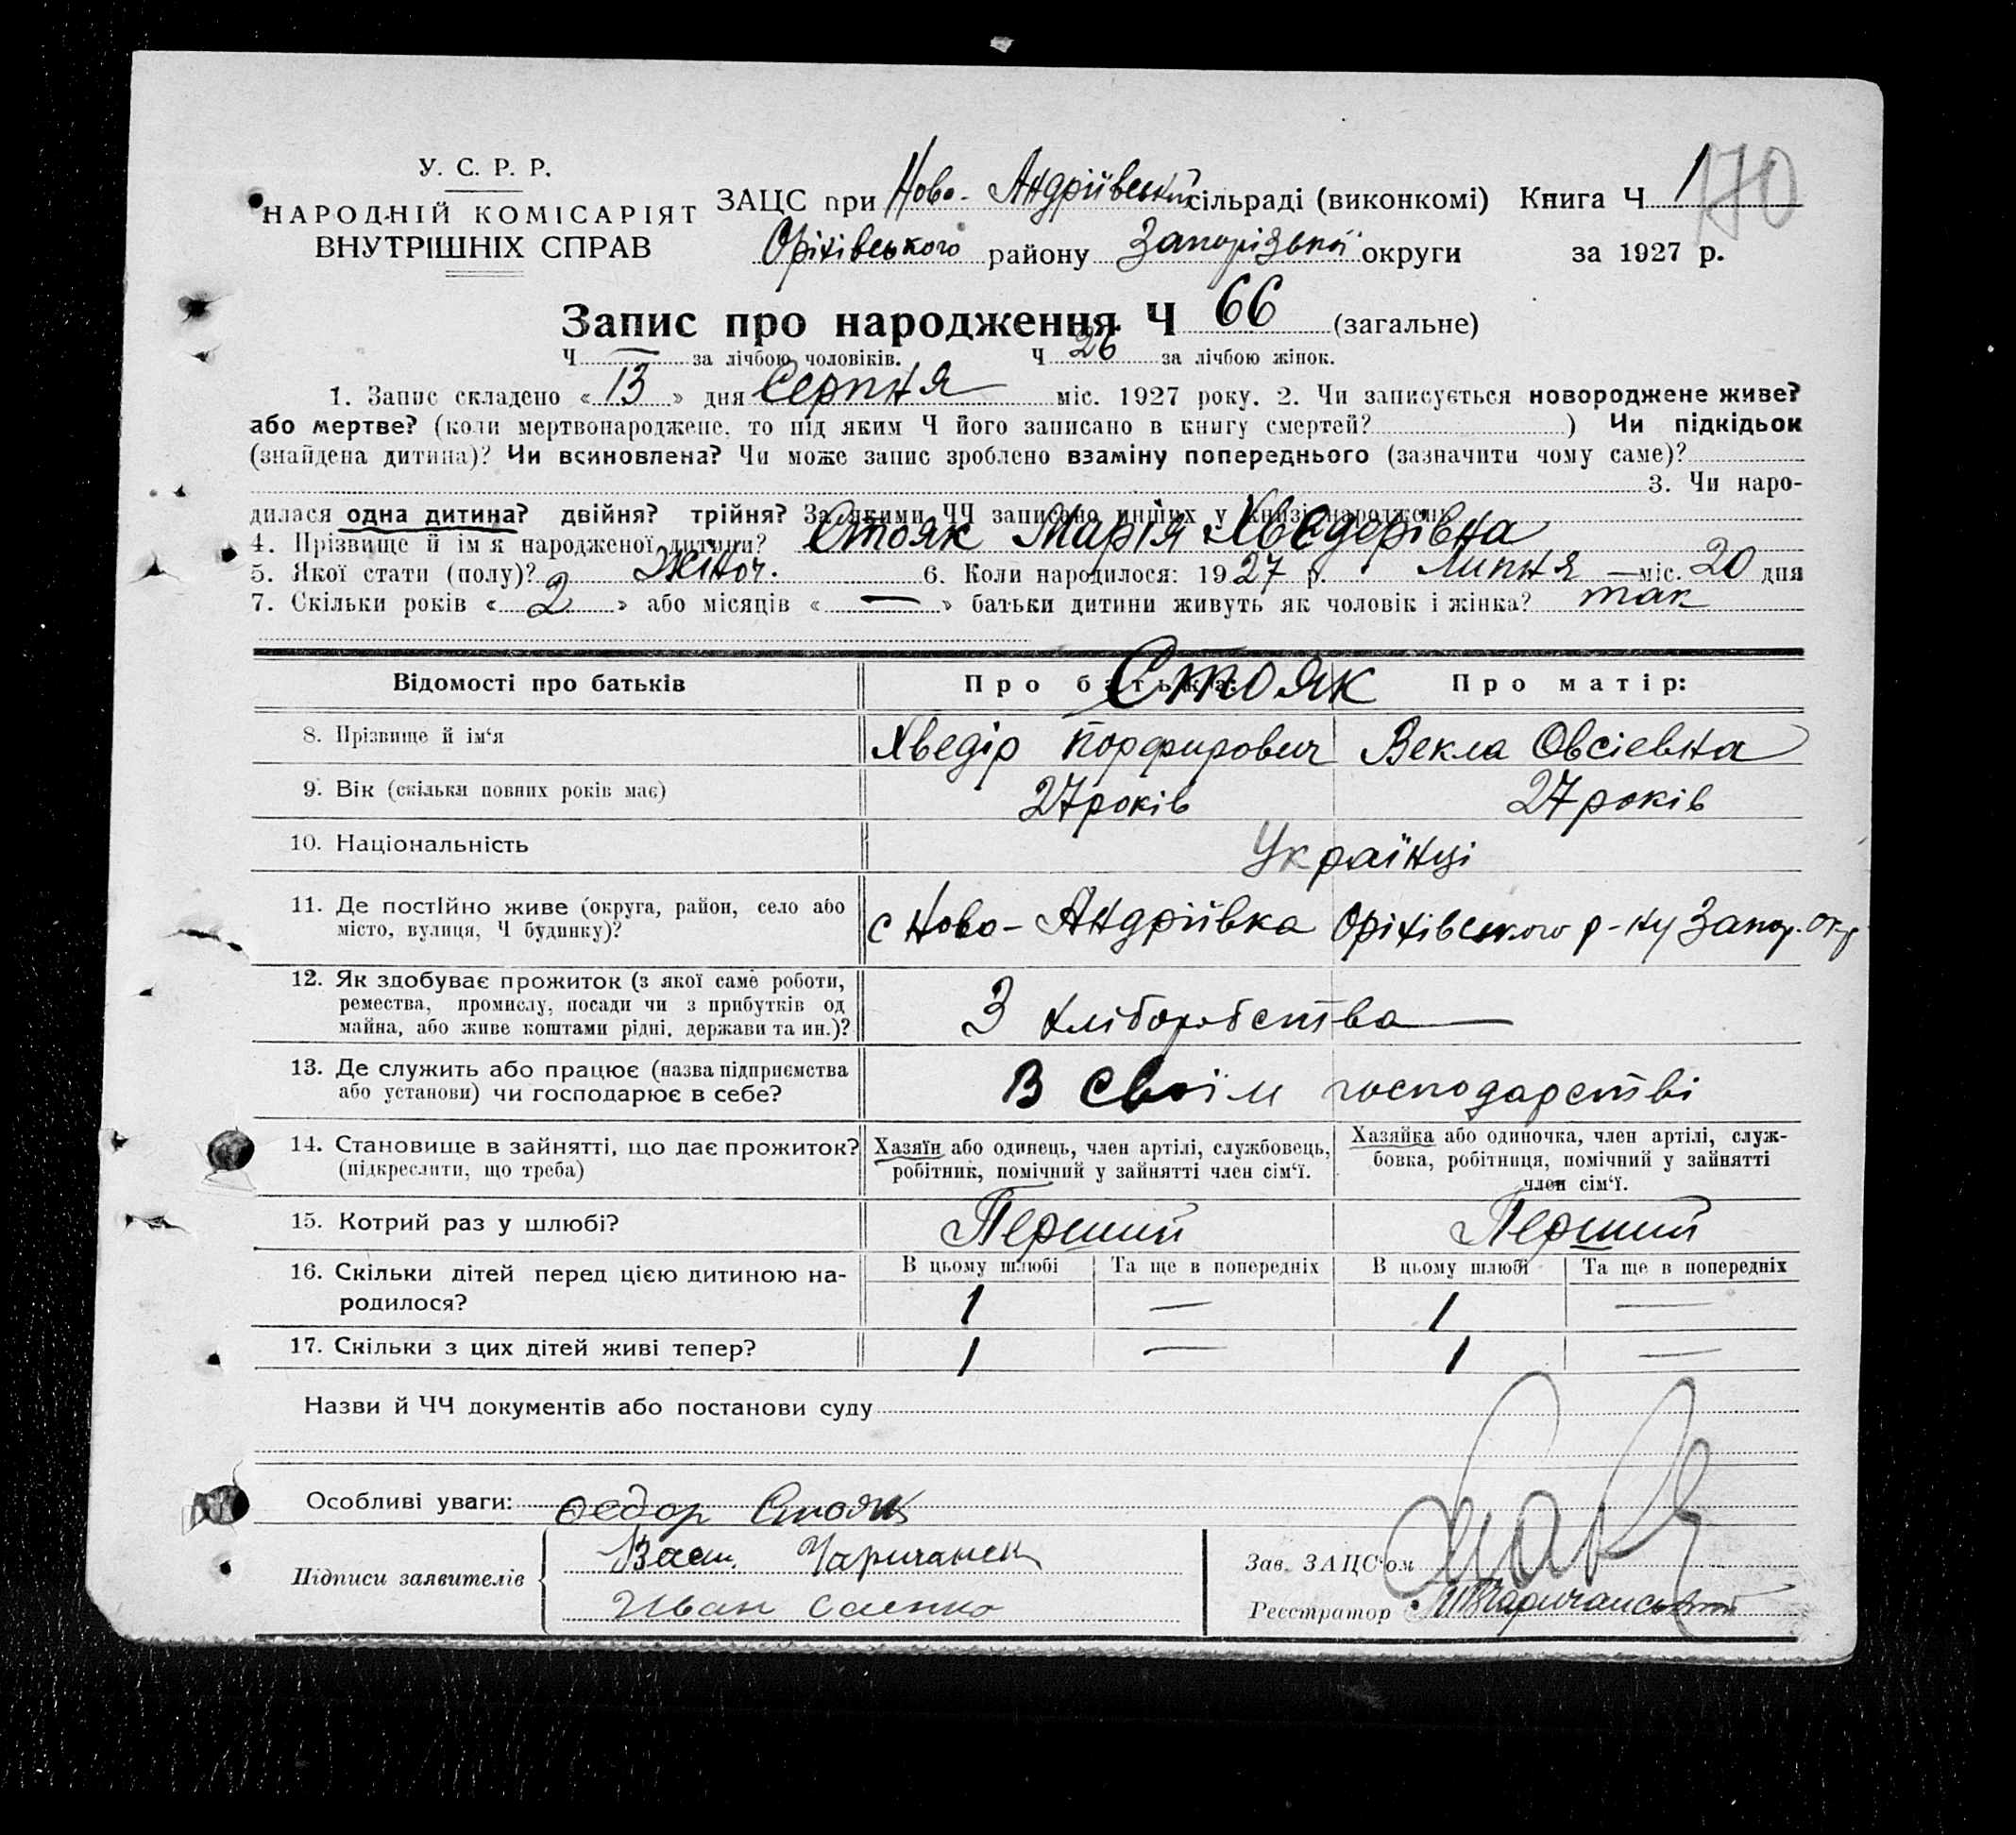 170
У. С. Р. Р.
НАРОДНІЙ КОМІСАРІЯТ
ВНУТРІШНІХ СПРАВ
ЗАЦС при Ново-Андріївській сільраді (виконкомі) Книга Ч 1
Оріхівського району Запорізької округи за 1927 р.
Запис про народження Ч 66 (загальне)
Ч — за лічбою чоловіків. Ч 26 за лічбою жінок.
1. Запис складено « 13 » дня Серпня міс. 1927 року. 2. Чи записується новороджене живе?
або мертве? (коли мертвонароджене, то під яким Ч його записано в книгу смертей? ) Чи підкідьок
(знайдена дитина)? Чи всиновлена? Чи може запис зроблено взаміну попереднього (зазначити чому саме)?
3. Чи наро-
дилася одна дитина? двійня? трійня? За якими ЧЧ записано инших у книзі народжень
4. Прізвище й ім'я народженої дитини? Стояк Марія Хведорівна
5. Якої стати (полу)? Жіноч. 6. Коли народилося: 1927 р. Липня — міс. 20 дня
7. Скільки років « 2 » або місяців « — » батьки дитини живуть як чоловік і жінка? так
Відомості про батьків Про батька: Стояк Про матір:
8. Прізвище й ім'я Хведір Порфирович Векла Овсіевна
9. Вік (скільки повних років має) 27 років 27 років
10. Національність Українці
11. Де постійно живе (округа, район, село або
місто, вулиця, Ч будинку)? с Ново-Андріївка Оріхівського р-ну Запор. Окр
12. Як здобуває прожиток (з якої саме роботи,
ремества, промислу, посади чи з прибутків од
майна, або живе коштами рідні, держави та ин.)? З хліборобства
13. Де служить або працює (назва підприємства
або установи) чи господарює в себе? В своїм господарстві
14. Становище в зайнятті, що дає прожиток?
(підкреслити, що треба)
Хазяїн або одинець, член артілі, службовець,
робітник, помічний у зайнятті член сім'ї.
Хазяйка або одиночка, член артілі, служ-
бовка, робітниця, помічний у зайнятті
член сім'ї.
15. Котрий раз у шлюбі? Перший Перший
16. Скільки дітей перед цією дитиною на-
родилося?
В цьому шлюбі Та ще в попередніх В цьому шлюбі Та ще в попередніх
1 — 1 —
17. Скільки з цих дітей живі тепер? 1 — 1 —
Назви й ЧЧ документів або постанови суду
Особливі уваги: Федор Стояк
Підписи заявителів
Вас. Чаричанск
Иван Саенко
Зав. ЗАЦС'ом
Реєстратор Чаричанський